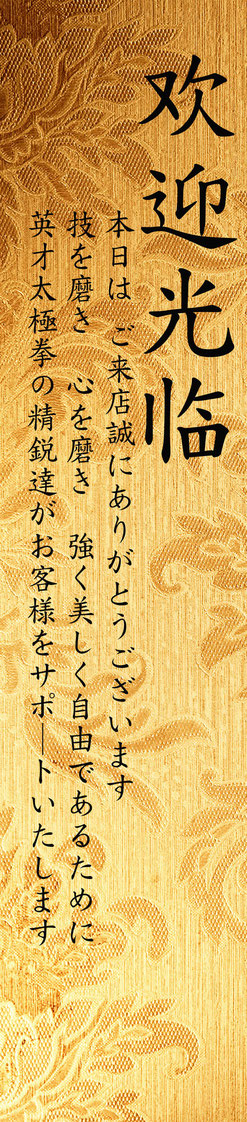 欢迎光临
本日は　ご来店誠にありがとうございます
技を磨き　心を磨き　強く美しく自由であるために
英才太極拳の精鋭達がお客様をサポートいたします